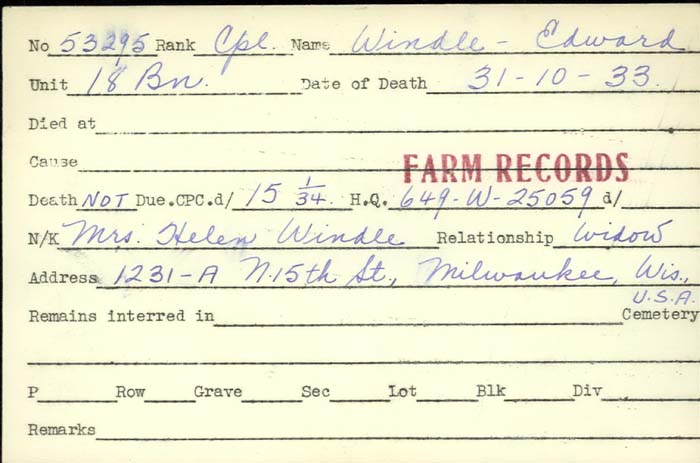 No 53295 Rank Cpl. Name Windle - Edward
Unit 18 Bn. Date of Death 31-10-33.
Died at
Cause FARM RECORDS
Death NOT Due.CPC.d/ 15 1/34. H.Q. 649-W-25059 d/
N/K Mrs. Helen Windle Relationship Widow
Address 1231-A N.15th St., Milwaukee, Wis.,
U.S.A.
Remains interred in Cemetery
P Row Grave Sec Lot Blk Div
Remarks